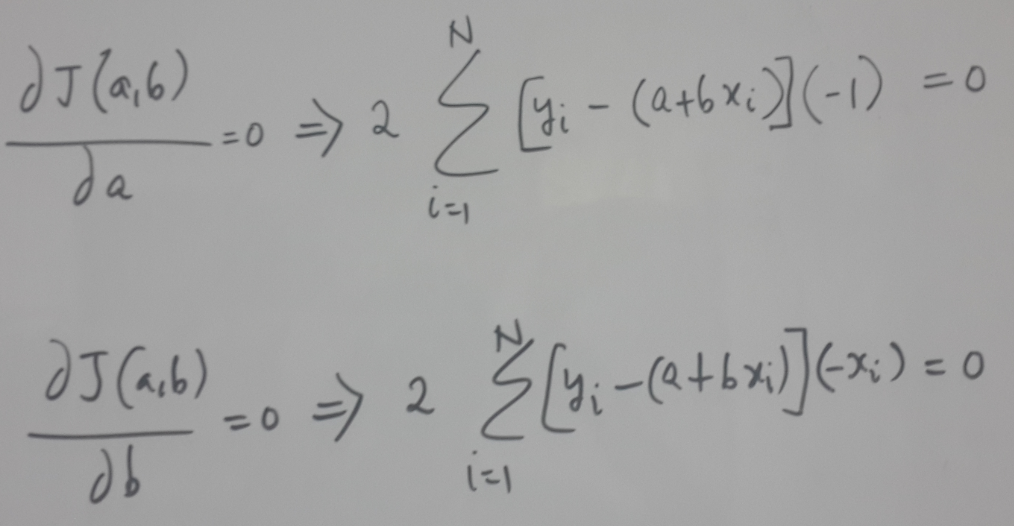 ∂J(a,b)/∂a = 0 ⇒ 2 ∑_{i=1}^{N} [y_i - (a+bx_i)](-1) = 0
∂J(a,b)/∂b = 0 ⇒ 2 ∑_{i=1}^{N} [y_i - (a+bx_i)](-x_i) = 0